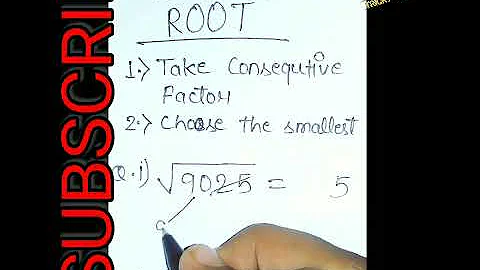 ROOT
1.> Take Consequtive
Factor
2.> Choose the smallest
Q.i) √9025 = 5
9
SUBSCRI